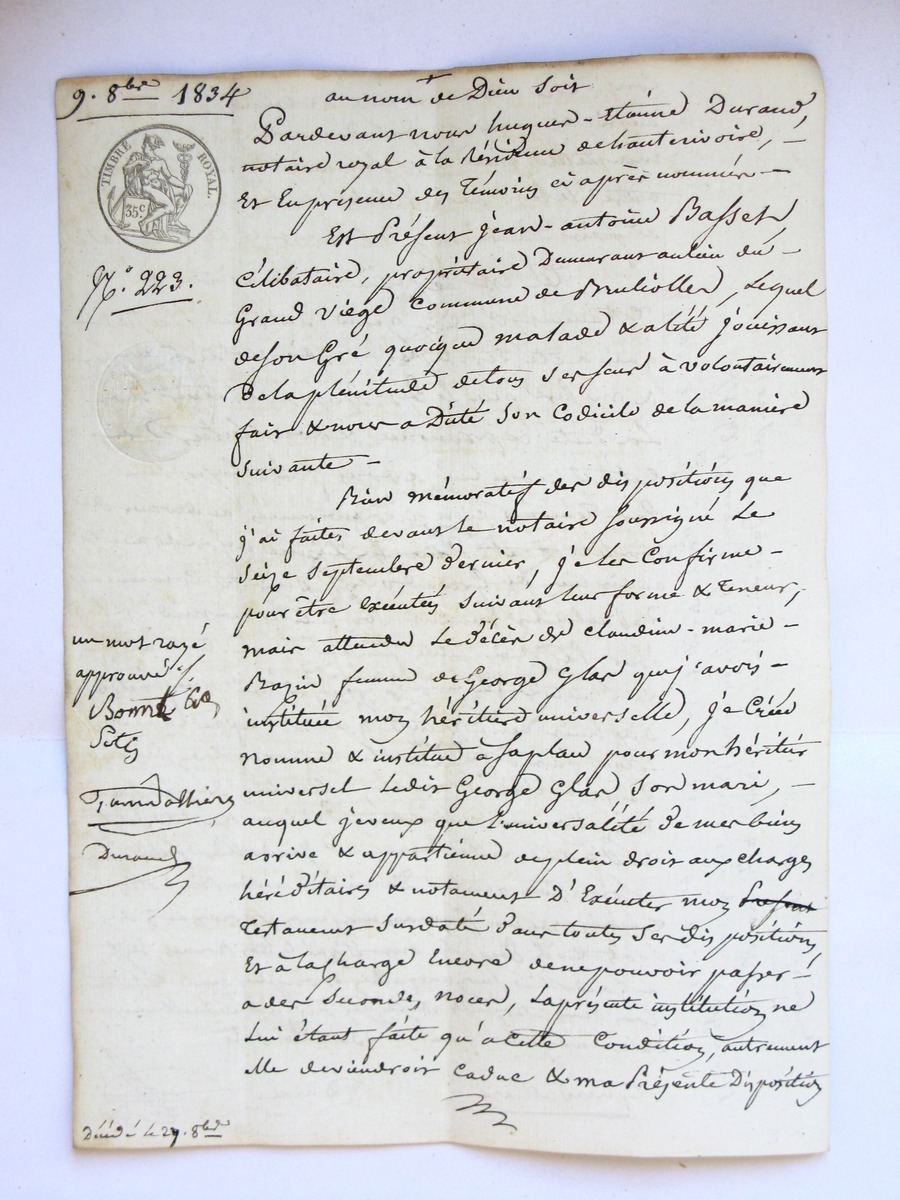 9. 8bre 1834
TIMBRE ROYAL
35c
N.o 223.
au nom de Dieu soit
Pardevant nous hugues-étienne Durand,
notaire royal à la résidence de hauterivoire, —
Et En présence des Témoins ci après nommés —
Est Présent jean-antoine Basset,
Célibataire, propriétaire Demeurant au lieu du —
Grand Viège Commune de Brulliolles, Lequel
de son Gré quoique malade & alité jouissant
De la plénitude de tous ses sens à volontairement
fait & nous a Dicté son Codicile de la manière
suivante —
Bien mémoratif des dispositions que
j'ai faites devant le notaire soussigné Le
seize septembre dernier, je les Confirme —
pour être Exécutés suivant leur forme & Teneur,
mais attendu Le Décès de Claudine-marie —
Bazin femme de George Glas que j'avois —
instituée mon héritière universelle, je Créé
nomme & institue à sa place pour mon héritier
universel Ledit George Glas son mari, —
auquel je veux que L'universalité de mes biens
arrive & appartienne de plein droit aux charges
héréditaires & notament D'Exécuter mon présent
Testament susdaté Dans toutes ses dispositions
Et à la charge Encore de ne pouvoir passer —
a des secondes noces, La présente institution ne
Lui étant faite qu'à Cette Condition, autrement
elle deviendroit Caduc & ma Présente Disposition
un mot rayé
approuvé
Bonnet
Durand
Décédé le 29. 8bre